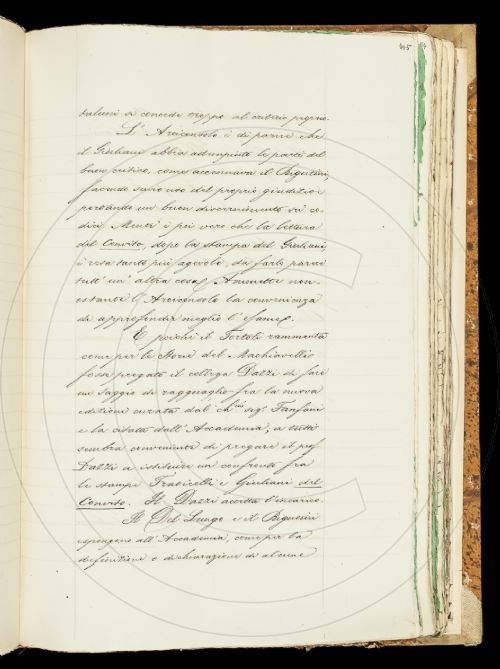 405
taluni si concede troppo al criterio proprio.
L'Arciconsolo è di parere che
il Giuliani abbia adempiute le parti del
buon critico, come accennava il Bigutini,
facendo savio uso del proprio giudizio e
portando un buon discernimento su' co-
dici. Mentr' è poi vero che la lettura
del Convito, dopo la stampa del Giuliani,
è resa tanto più agevole, da farla parere
tutt' un' altra cosa. Ammette non-
ostante l'Arciconsolo la convenienza
di approfondir meglio l'esame.
E poichè il Tortoli rammenta
come per le Storie del Machiavelli
fosse pregato il collega Dazzi di fare
un saggio di ragguaglio fra la nuova
edizione curata dal ch.mo sig. Fanfani
e la citata dall'Accademia, a tutti
sembra conveniente di pregare il prof.
Dazzi a istituire un confronto fra
le stampe Fraticelli e Giuliani del
Convito. Il Dazzi accetta l'incarico.
Il Del Lungo e il Bigutini
espongono all'Accademia, come per la
definizione o dichiarazione di alcune